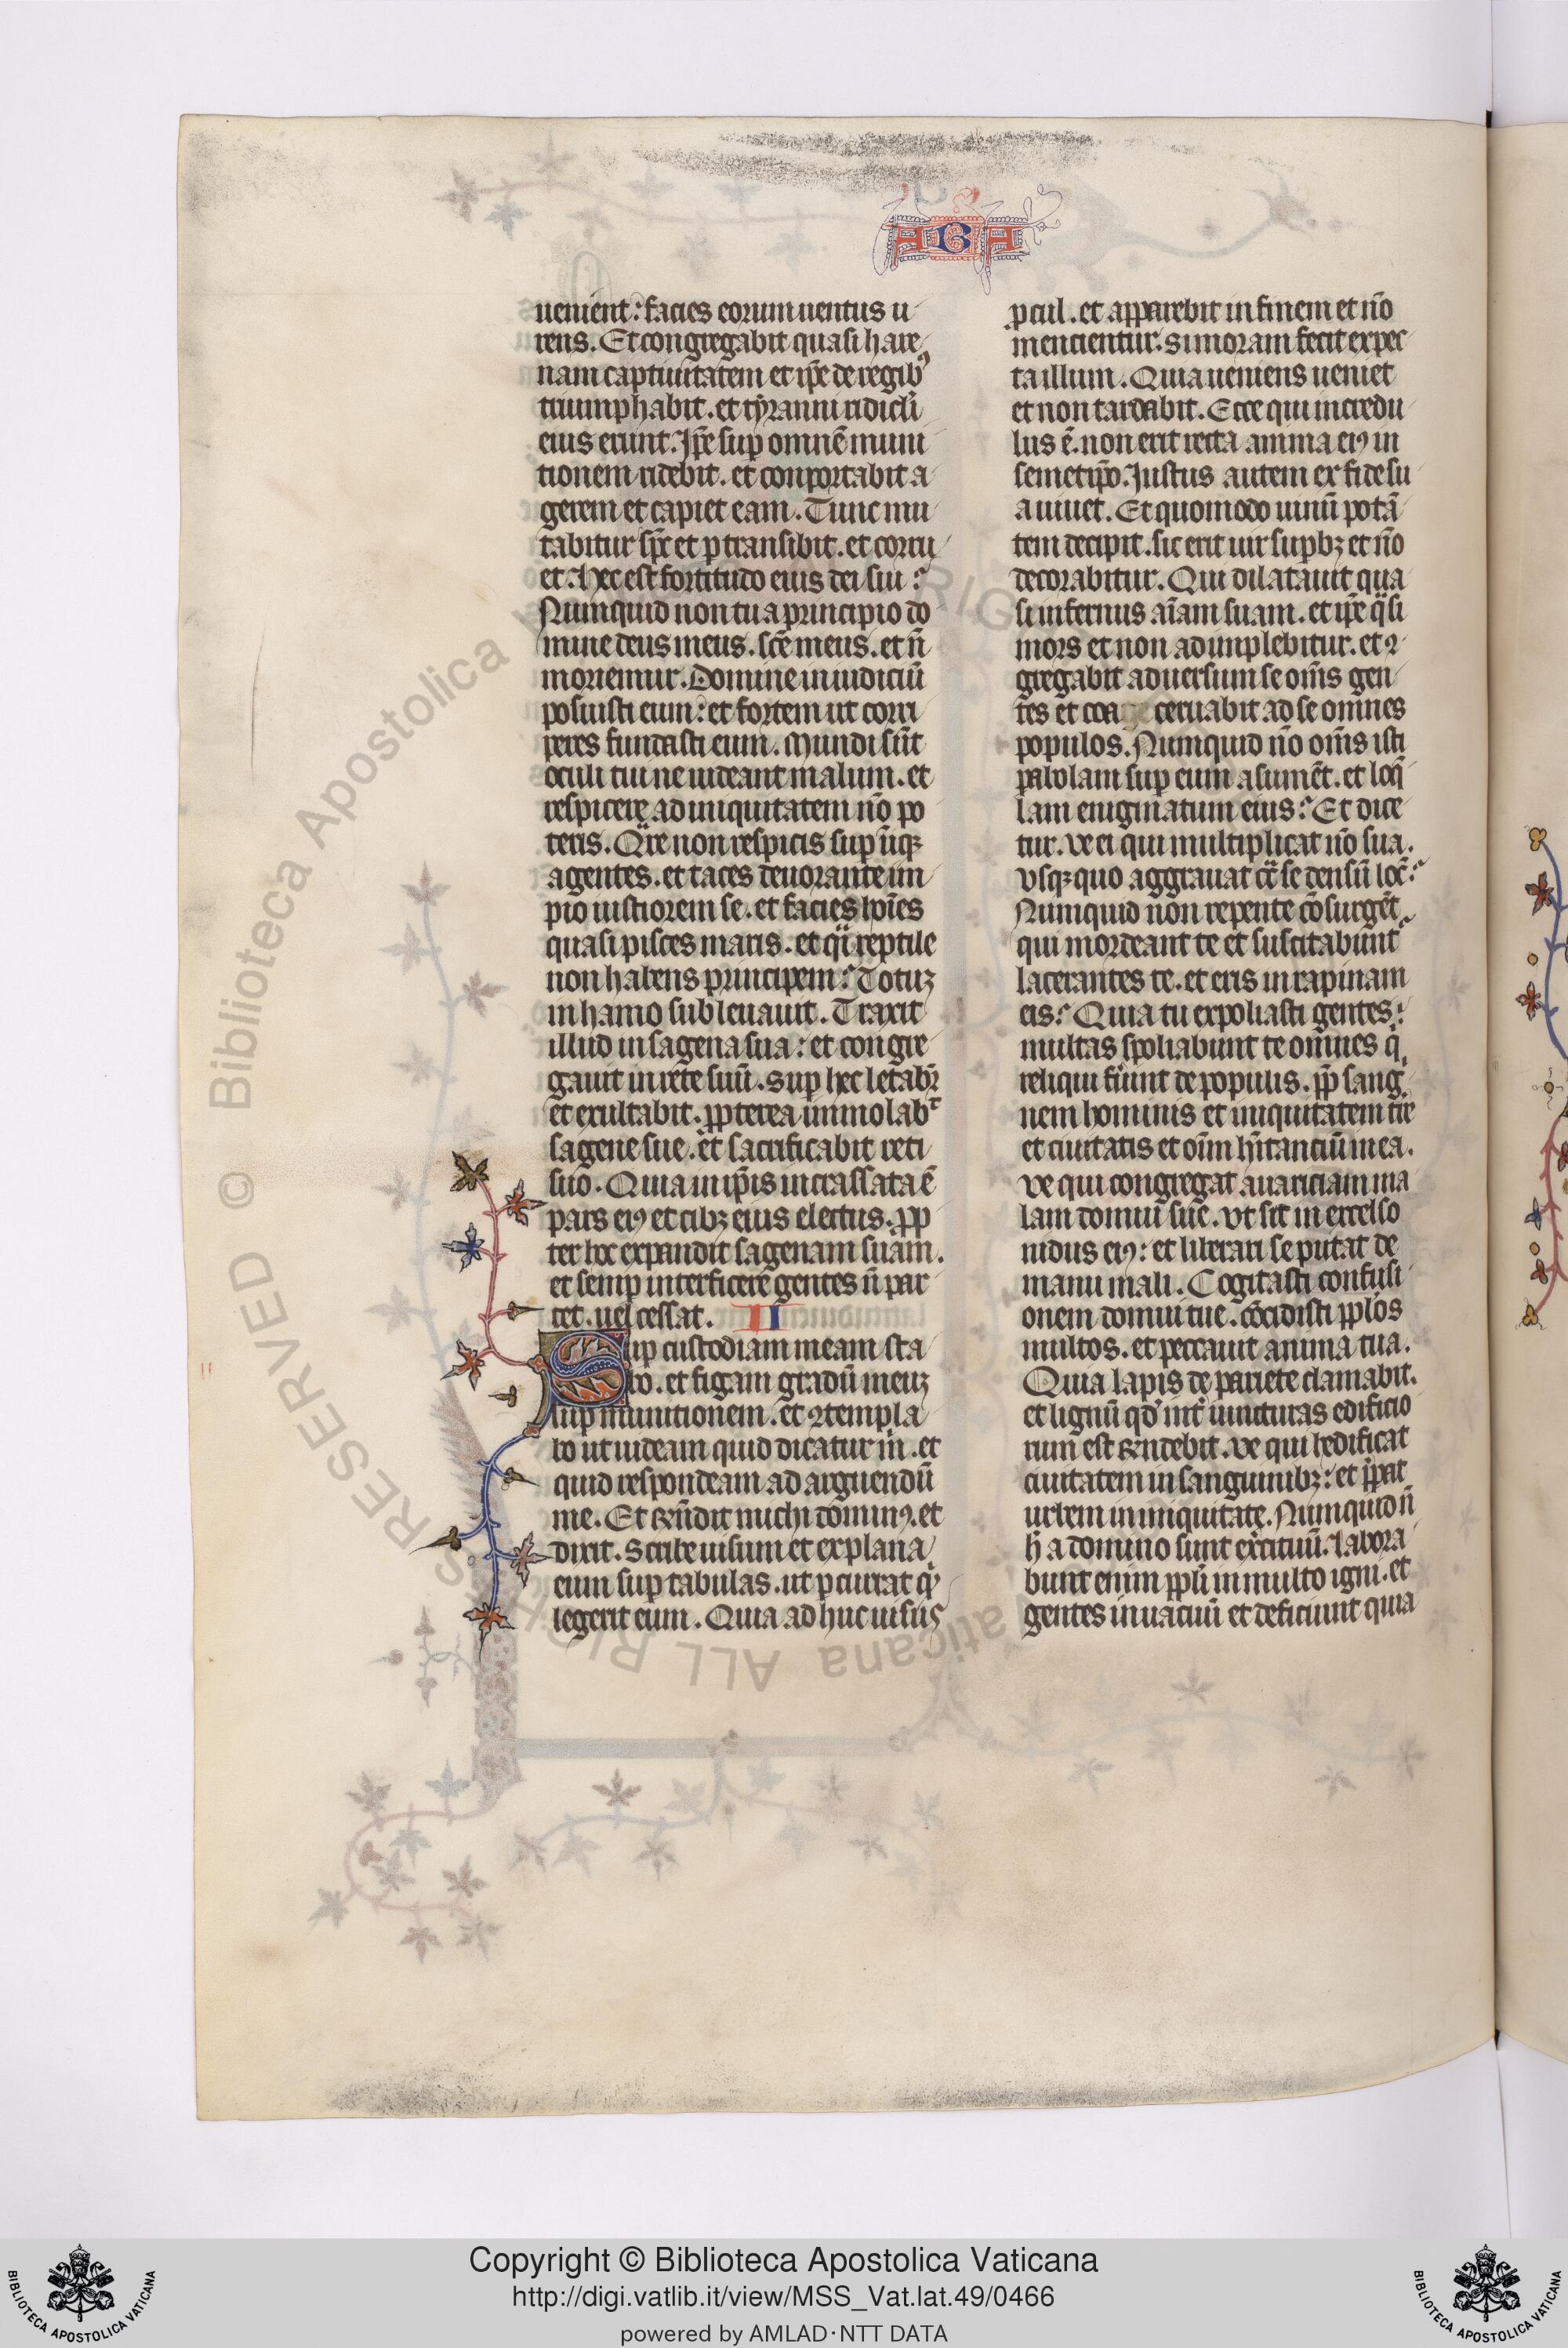 ABA
uenient : facies eorum uentus u
rens . Et congregabit quasi hare
nam captiuitatem et ip̄e de regib⁹
triumphabit . et tyranni ridicl̄i
eius erunt . Ip̄e sup omnē muni
tionem ridebit . et conportabit a
gerem et capiet eam . Tunc mu
tabitur sp̄c et ptransibit . et corru
et . hec est fortitudo eius dei sui :
Numquid non tu a principio do
mine deus meus . sc̄e meus . et n̄
moriemur . Domine in iudiciū
posuisti eum : et fortem ut corri
peres fundasti eum . Mundi sūt
oculi tui ne uideant malum . et
respicere ad iniquitatem nō po
teris . Qr̄e non respicis sup īiq
agentes . et taces deuorante im
pio iustiorem se . et facies hoīes
quasi pisces maris . et qͣi reptile
non habens principem : Totuz
in hamo subleuauit . Traxit
illud in sagena sua : et congre
gauit in rete suū . Sup hec letabr̄
et exultabit . ppterea immolabͭ
sagene sue . et sacrificabit reti
suo . Quia in ip̄is incrassata ē
pars ei⁹ et cibz eius electus . pp
ter hoc expandit sagenam suam .
et semp interficere gentes n̄ par
cet . uel cessat . II
Sup custodiam meam sta
bo . et figam gradū meuz
sup munitionem . et ꝯtempla
bo ut uideam quid dicatur m̄ . et
quid respondeam ad arguendū
me . Et rn̄dit michi domin⁹ . et
dixit . Scribe uisum et explana
eum sup tabulas . ut pcurrat qͥ
legerit eum . Quia ad huc uisus
pcul . et apparebit in finem et nō
mencientur . si moram fecit expec
ta illum . Quia ueniens ueniet
et non tardabit . Ecce qui incredu
lus ē . non erit recta anima ei⁹ in
semetipō . Iustus autem ex fide su
a uiuet . Et quomodo uinū potā
tem decipit . sic erit uir supbz et nō
decorabitur . Qui dilatauit qua
si infernus aīam suam . et ip̄e qͣsi
mors et non adimplebitur . et ꝯ
gregabit aduersum se om̄s gen
tes et coa ceruabit ad se omnes
populos . Numquid nō om̄s isti
palolam sup eum asumēt . et loq̄
lam enigmatum eius : Et dice
tur . ve ei qui multiplicat nō sua .
vsqz quo aggrauat cͣ se densū loc̄ :
Numquid non repente cōsurgēt
qui mordeant te et suscitabunt
lacerantes te . et eris in rapinam
eis : Quia tu expoliasti gentes
multas spoliabunt te omnes qͥ
reliqui fu̅nt de populis . pp̄ sangͥ
nem hominis et iniquitatem tr̄e
et ciuitatis et oīm hītanciū in ea .
ve qui congregat auariciam ma
lam domui sue . vt sit in excelso
nidus ei⁹ : et liberari se putat de
manu mali . Cogitasti confusi
onem domui tue . cōcidisti pplos
multos . et peccauit anima tua .
Quia lapis de pariete clamabit .
et lignū qd int̄ iuncturas edificio
rum est rn̄debit . ve qui hedificat
ciuitatem in sanguinibz : et p̄pat
urbem in iniquitate . Numquid n̄
h̄ a domino sunt ex̄cituū . labora
bunt enim ppl̄i in multo igni . et
gentes in uacuū et deficiunt quia
© Biblioteca Apostolica Vaticana ALL RIGHTS RESERVED
Copyright © Biblioteca Apostolica Vaticana
http://digi.vatlib.it/view/MSS_Vat.lat.49/0466
powered by AMLAD·NTT DATA
BIBLIOTECA APOSTOLICA VATICANA
BIBLIOTECA APOSTOLICA VATICANA